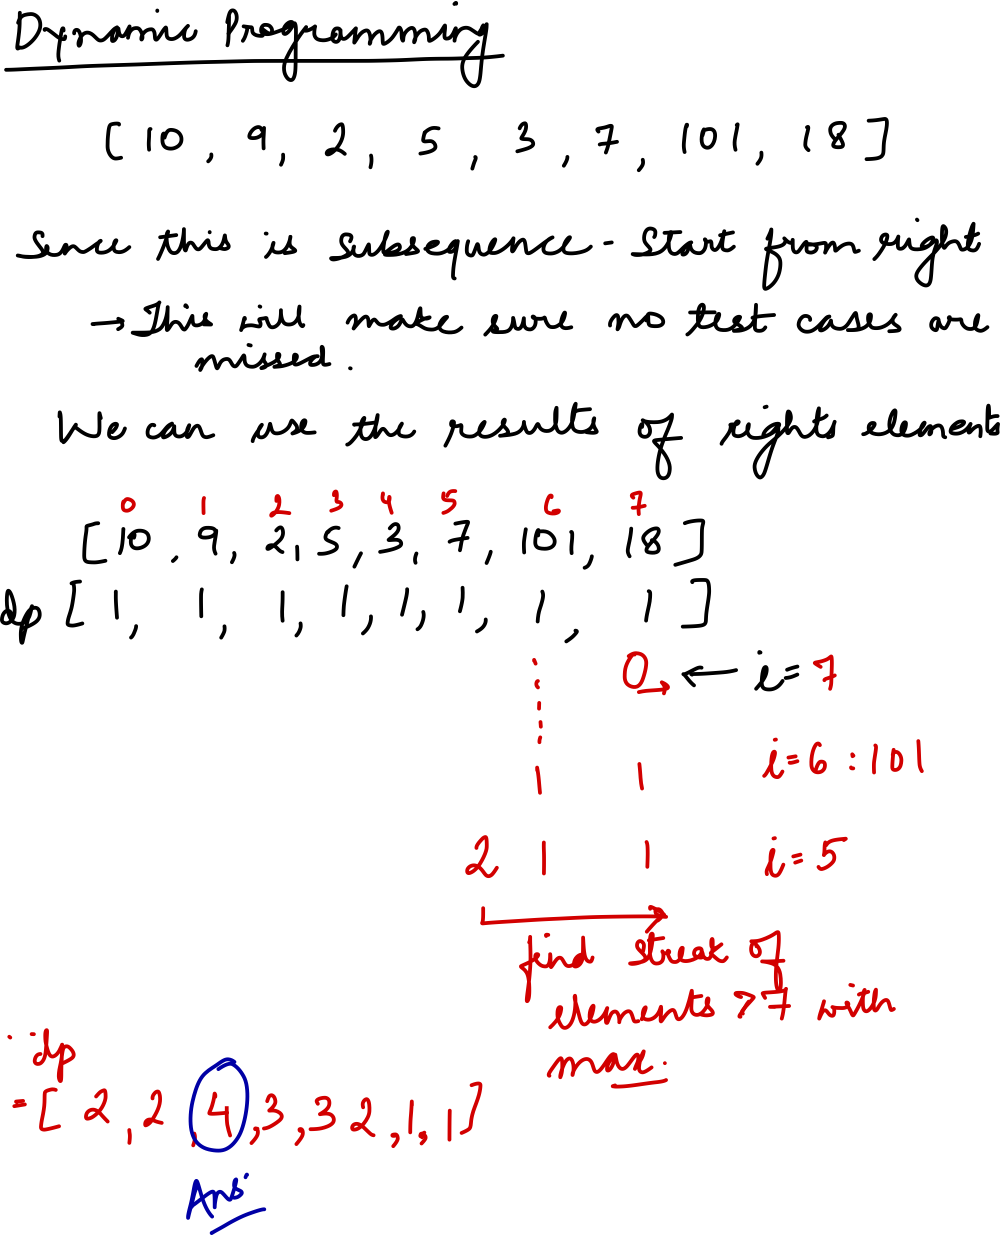 Dynamic Programming
[ 10 , 9 , 2 , 5 , 3 , 7 , 101 , 18 ]
Since this is Subsequence - Start from right
→ This will make sure no test cases are
missed .
We can use the results of rights elements
0 1 2 3 4 5 6 7
[ 10 , 9 , 2 , 5 , 3 , 7 , 101 , 18 ]
dp [ 1 , 1 , 1 , 1 , 1 , 1 , 1 , 1 ]
0 ← i = 7
1 1 i = 6 : 101
2 1 1 i = 5
find streak of
elements > 7 with
max .
dp
= [ 2 , 2 , 4 , 3 , 3 2 , 1 , 1 ]
Ans